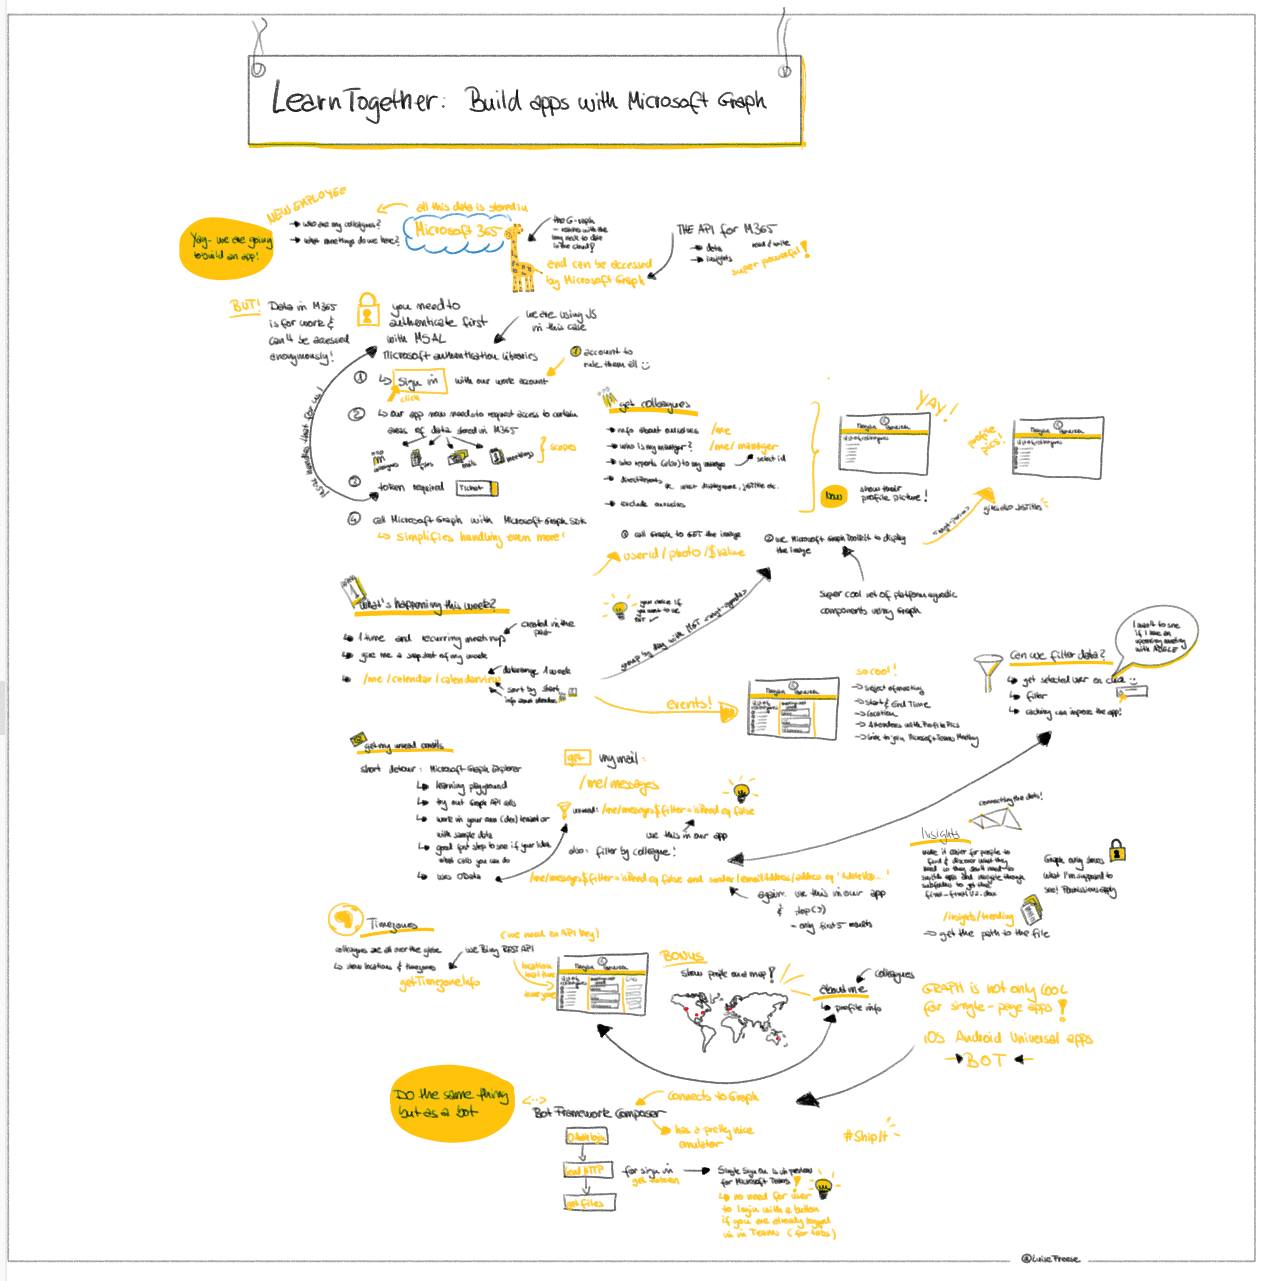 LearnTogether: Build apps with Microsoft Graph
Yay - we are going
to build an app!
NEW EMPLOYEE
→ who are my colleagues?
→ what meetings do we have?
all this data is stored in
Microsoft 365
the G-raph
in the cloud?
and can be accessed
by Microsoft Graph
THE API for M365
→ data read/write
→ insights
super powerful!
BUT!
Data in M365
is for work &
can't be accessed
anonymously!
you need to
authenticate first
with MSAL
Microsoft authentication libraries
we are using JS
in this case
1 account to
rule them all
handles that for us!
① Sign in with our work account
click
② our app now needs to request access to certain
areas of data stored in M365
files
mails
meetings
scopes
token required Ticket
④ call Microsoft Graph with Microsoft Graph SDK
simplifies handling even more!
get colleagues
→ info about ourselves /me
→ who is my manager? /me/manager
→ who reports (also) to my manager
select id
→ directReports
→ exclude ourselves
YAY!
Now
show their
profile picture!
profile
pics!
gives also JobTitles
① call Graph to GET the image
userid/photo/$value
② use Microsoft Graph Toolkit to display
the image
super cool set of platform agnostic
components using Graph
What's happening this week?
1 time and recurring meetings
created in the
past
give me a snapshot of my week
/me/calendar/calendarview
daterange 1 week
sort by start
your choice if
you want to use
MGT
group by day with MGT <mgt-agenda>
events!
so cool!
→ Subject of meeting
→ Start & End Time
→ Location
→ Attendees with Profile Pics
→ Link to join Microsoft Teams Meeting
Can we filter data?
I want to see
if I have an
upcoming meeting
with ADELE
get selected user on click
filter
caching can improve the app!
get my unread emails
short detour: Microsoft Graph Explorer
learning playground
try out Graph API calls
work in your own (dev) tenant or
with sample data
good first step to see if your idea
what calls you can do
uses OData
get my mail:
/me/messages
unread: /me/messages$filter=isRead eq false
use this in our app
also: filter by colleague!
/me/messages$filter=isRead eq false and sender/emailAddress/address eq
again: use this in our app
& .top(5)
- only first 5 results
connecting the dots!
Insights
make it easier for people to
find & discover what they
need so they don't need to
switch apps and navigate through
subfolders to get the
final-final.v2.docx
Graph only shows
what I'm supposed to
see! Permissions apply
/insights/trending
→ get the path to the file
Timezones
colleagues are all over the globe
show locations & timezones
use Bing REST API
getTimezoneInfo
(we need an API key)
location
local time
timezone
BONUS
show people on a map!
About me
colleagues
profile info
GRAPH is not only COOL
for single-page apps!
iOS Android Universal apps
→ BOT ←
DO the same thing
but as a bot
Bot Framework Composer
connects to Graph
has a pretty nice
emulator
#ShipIt
OAuth login
send HTTP
get files
for sign in
get token
Single Sign on is in preview
for Microsoft Teams!
no need for user
to login with a button
if you are already logged
in in Teams (for tabs)
@LuiseFreese